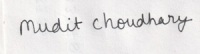 Mudit Choudhary